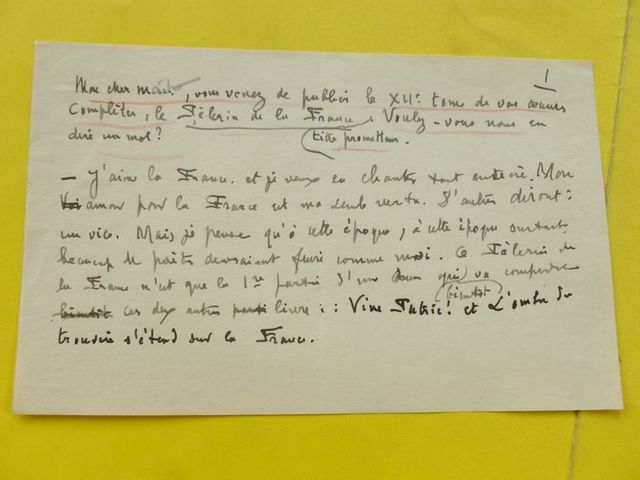 1
Mon cher maître, vous venez de publier le XIIe tome de vos œuvres
Complètes, le Pèlerin de la France. Voulez-vous nous en
dire un mot? titre prometteur.
— J'aime la France. et je veux la chanter tout entière. Mon
amour pour la France est ma seule vertu. D'autres diront:
un vice. Mais je pense qu'à cette époque, à cette époque surtout,
beaucoup de poètes devraient faire comme moi. Ce Pèlerin de
la France n'est que la 1re partie d'un qui va comprendre
bientôt ces deux autres livres: Vive Patrie! et L'ombre du
trouvère s'étend sur la France.